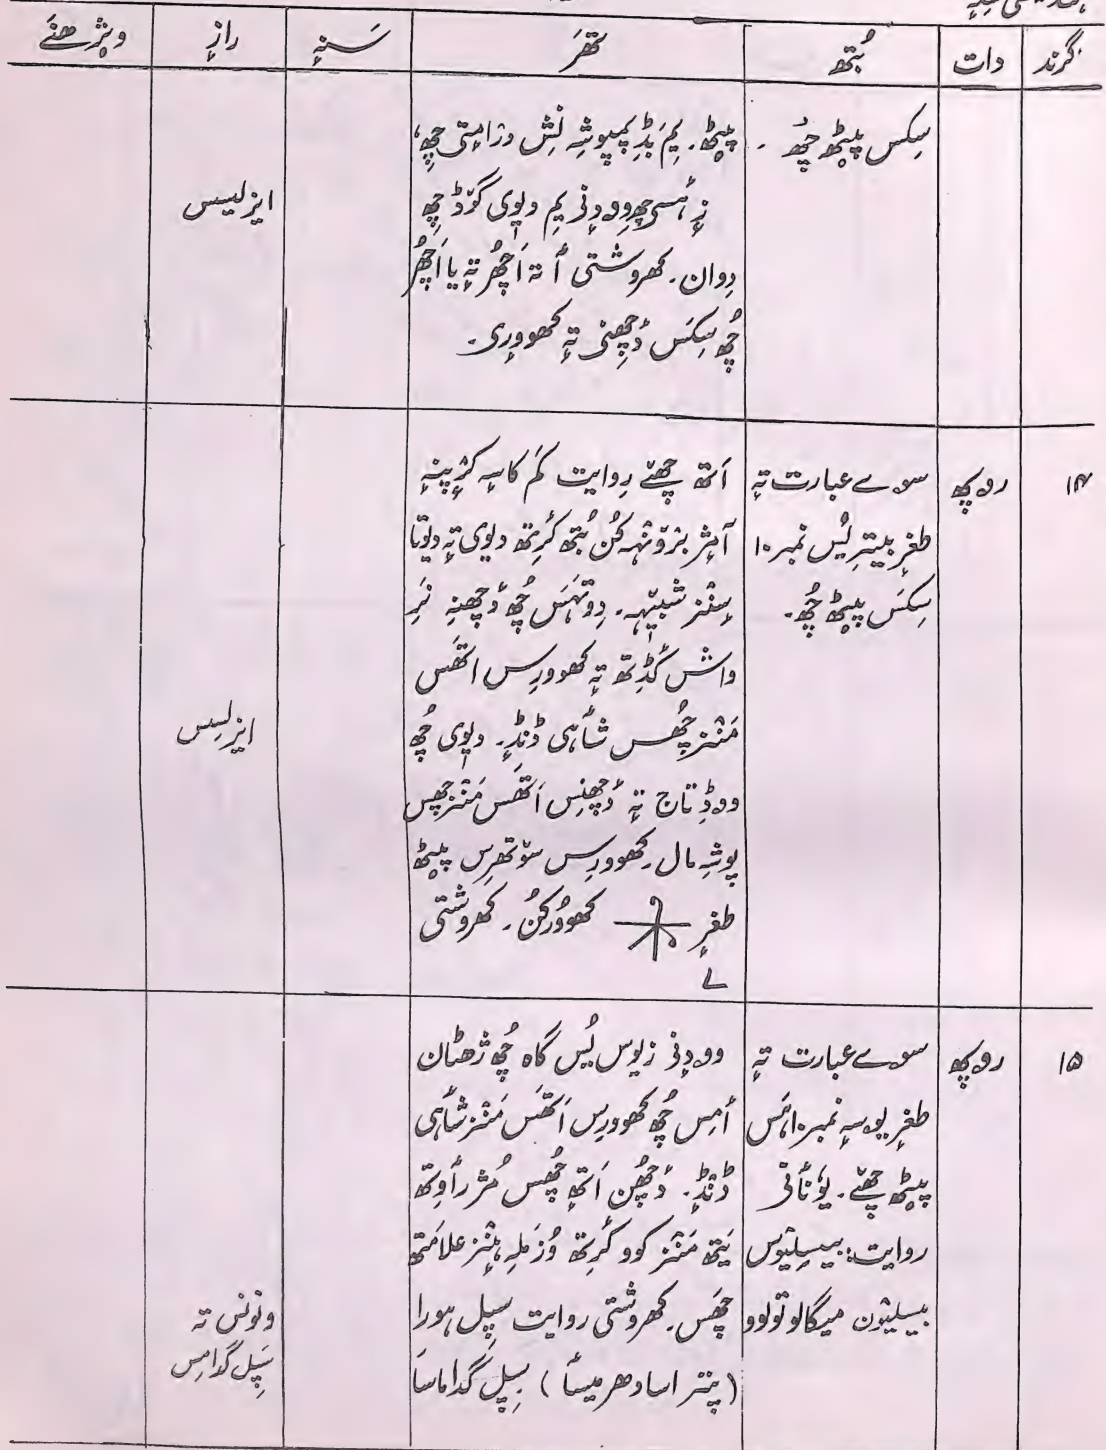 گرند	دات	بُتھ	تھَر	سَنہٕ	رازٕ	ویژھنَے
سِکس پیٹھ چُھ ۔
پیٹھ۔ یِم بٔڈ پمپوشِہ نِش درامٕتی چِھ،
زٕ ۂسی چھِ وودنی یِم دیوی گوڈ چِھ
دِوان۔ کھروشتی أ تہٕ اَچُھر تہٕ یا اَچھُر
چُھ سِکَس دٔچھنی تہٕ کھووری۔
ایزلیسس
۱۴	روپھ
سوے عبارت تہٕ
طغرٕ بیترِ یُس نمبر ۱۰
سِکس پیٹھ چُھ۔
اَتھ چھےٚ رِوایت کَم کاسہٕ کرٕپنہٕ
آمٕژ برونٛہہ کُن بُتھ کٔرِتھ دیوی تہٕ دیوتا
سٕنٛز شبیٖہہ۔ دِوتہَس چُھ دٔچھنہِ نَرِ
واش کٔڈِتھ تہٕ کھوورِس اتھَس
مَنٛز چُھس شأہی ڈنڈٕ۔ دیوی چُھ
ووڈِ تاج تہٕ دٔچھنِس اَتھَس مَنٛز چَھس
پوشہِ مال۔ کھوورِس سوتھرِس پیٹھ
طغرٕ کھووُرکُن۔ کھروشتی
لے
ایزلیس
۱۵	روپھ
سوے عبارت تہٕ
طغرٕ یوسہٕ نمبر ۱۰ ہَس
پیٹھ چھےٚ۔ یوٗنأنی
روایت: بیسیلیوس
بیسلیٚون میگالو تولوو
وودنی زیوس یُس گاہ چُھ ژھٹان
أمِس چُھ کھوورِس اَتھَس مَنٛز شأہی
ڈنڈٕ۔ دٔچھُن اَتھٕ چُھس مُژ رأوِتھ
یَتھ مَنٛز کوو کٔرِتھ وُزملہٕ ہٕنٛز علامَتھ
چَھس۔ کھروشتی روایت سپل ہورا
(پنتر اسا دھر میسأ) سپل گداماسا
ونونس تہٕ
سپل گدامِس